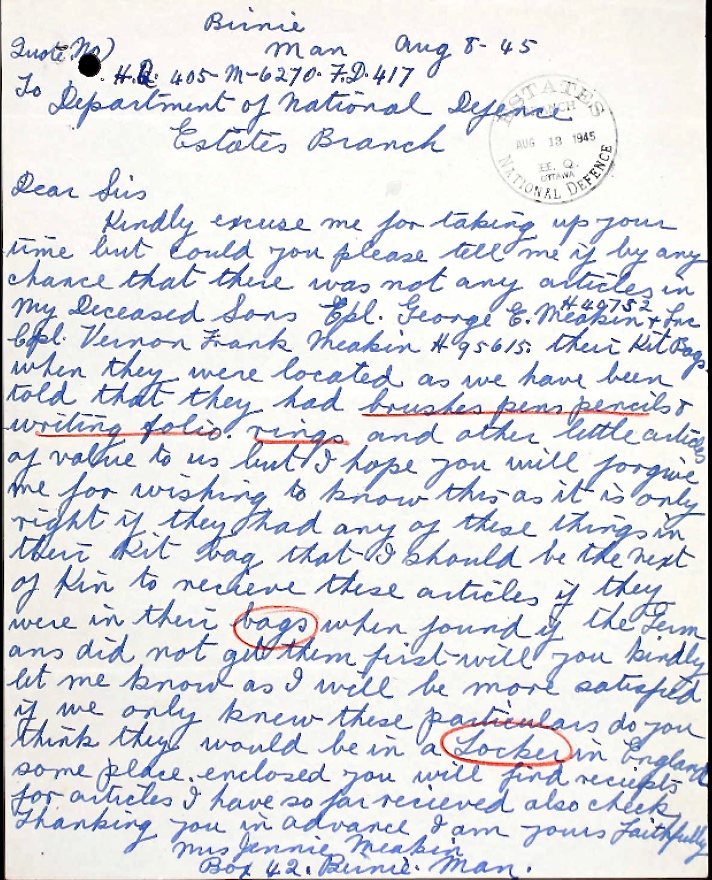 Birnie
Man Aug 8-45
Quote No)
H.Q. 405-M-6270. F.D. 417
To Department of National Defence
Estates Branch
ESTATES
BRANCH
AUG 13 1945
H. Q.
OTTAWA
NATIONAL DEFENCE
Dear Sirs
Kindly excuse me for taking up your
time but could you please tell me if by any
chance that there was not any articles in
my Deceased Sons Cpl. George E. Meakin H 44752 +
Cpl. Vernon Frank Meakin H 95615. their Kit Bags.
when they were located as we have been
told that they had brushes pens pencils &
writing folio. rings and other little articles
of value to us but I hope you will forgive
me for wishing to know this as it is only
right if they had any of these things in
their Kit bag that I should be the next
of Kin to recieve these articles if they
were in their bags when found if the Germ
ans did not get them first will you kindly
let me know as I will be more satisfied
if we only knew these particulars do you
think they would be in a Locker in England
some place. enclosed you will find reciepts
for articles I have so far recieved also check
Thanking you in advance I am yours Faithfully
Mrs Jennie Meakin
Box 42. Birnie. Man.